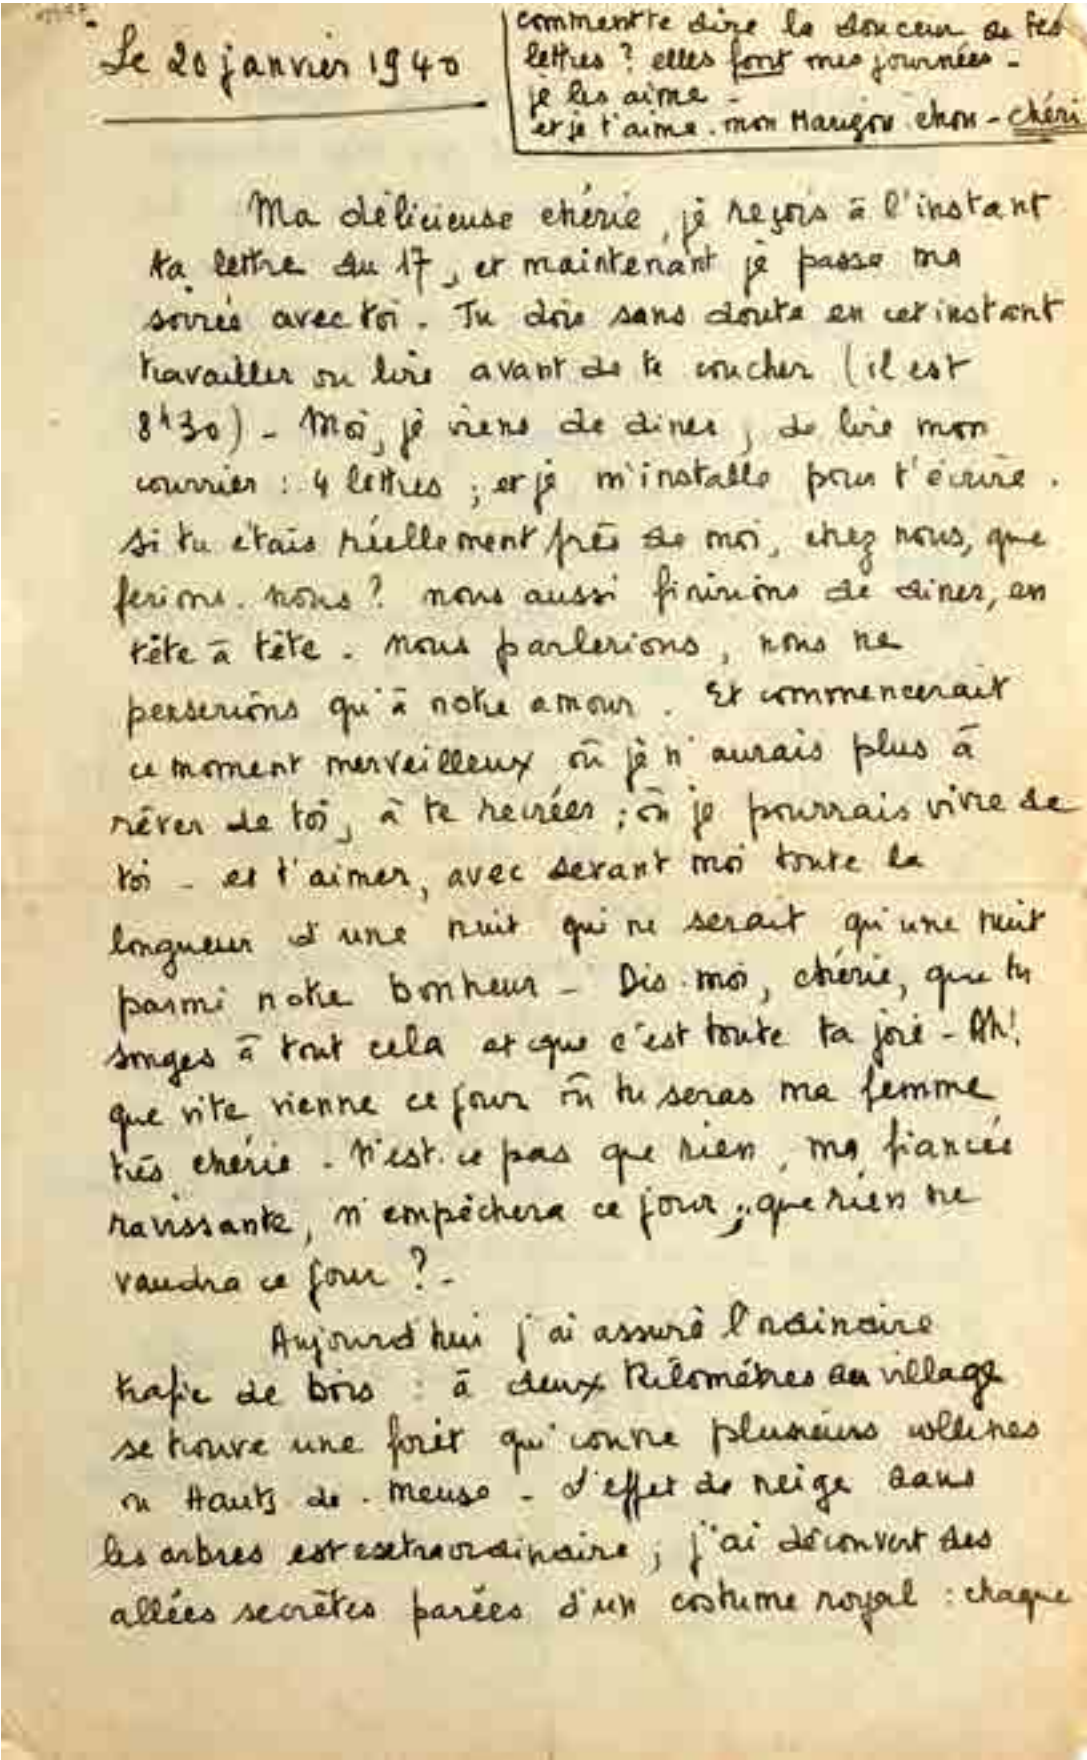 Le 20 janvier 1940
comment te dire la douceur de tes
lettres ? elles font mes journées -
je les aime -
et je t'aime. mon chou - chéri
Ma délicieuse chérie, je reçois à l'instant
ta lettre du 17, et maintenant je passe ma
soirée avec toi. Tu dois sans doute en cet instant
travailler ou lire avant de te coucher (il est
8h30) - Moi, je viens de diner, de lire mon
courrier : 4 lettres ; et je m'installe pour t'écrire.
Si tu étais réellement près de moi, chez nous, que
ferions-nous ? nous aussi finirions de diner, en
tête à tête. nous parlerions, nous ne
penserions qu'à notre amour. Et commencerait
ce moment merveilleux où je n'aurais plus à
rêver de toi, à te recréer ; où je pourrais vivre de
toi - et t'aimer, avec devant moi toute la
longueur d'une nuit qui ne serait qu'une nuit
parmi notre bonheur - Dis-moi, chérie, que tu
songes à tout cela et que c'est toute ta joie - Ah!
que vite vienne ce jour où tu seras ma femme
très chérie. N'est-ce pas que rien, ma fiancée
ravissante, n'empêchera ce jour ; que rien ne
vaudra ce jour ? -
Aujourd'hui j'ai assuré l'ordinaire
trafic de bois : à deux kilomètres du village
se trouve une forêt qui couvre plusieurs collines
ou Hauts-de-Meuse - L'effet de neige dans
les arbres est extraordinaire ; j'ai découvert des
allées secrètes parées d'un costume royal : chaque